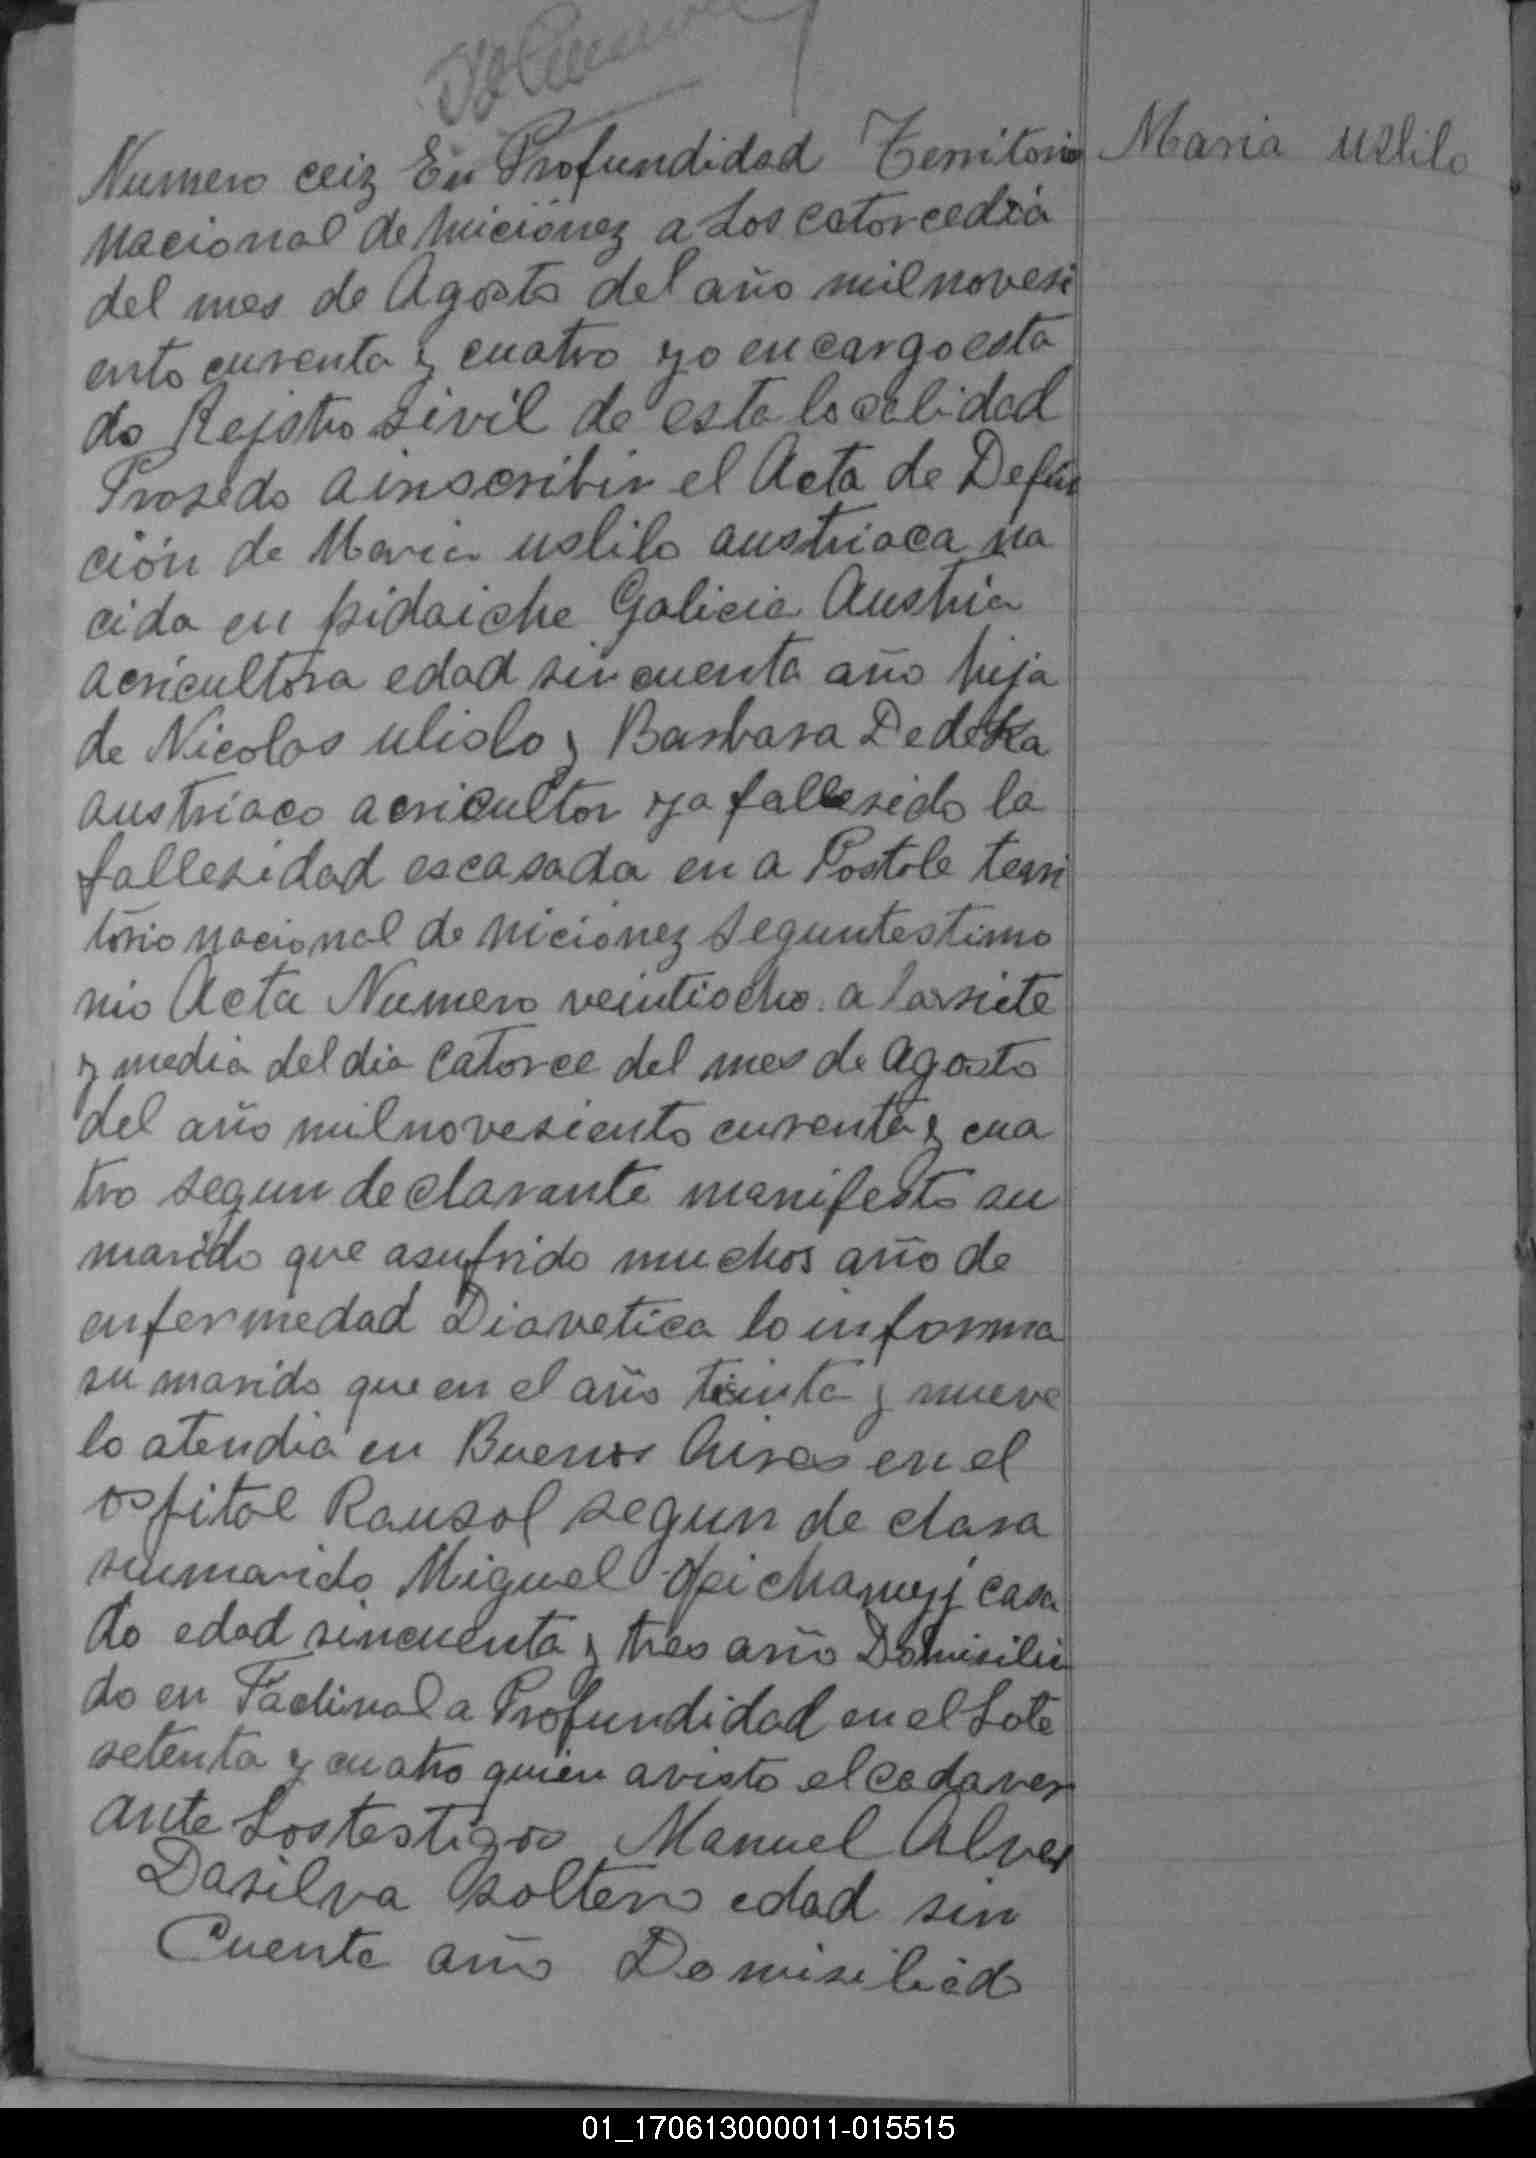 Maria uslilo
Numero ceiz En Profundidad Territorio
nacional de Miciónez a Los catorce dia
del mes de Agosto del año mil novesi
ento curenta y cuatro yo encargo esta
do Rejstro sivil de esta localidad
Prosedo a inscribir el Acta de Defun
ción de Maria uslilo austriaca na
cida en pidaiche Galicia Austria
acricultora edad sincuenta año hija
de Nicolas uliolo y Barbara Dedeka
austriaco acricultor ya fallesido la
fallesidad es casada en a Postole terri
torio nacional de miciónez segun testimo
nio Acta Numero veintiocho a las siete
y media del dia catorce del mes de Agosto
del año mil novesiento curenta y cua
tro segun declarante manifesto su
marido que a sufrido muchos año de
enfermedad Diavetica lo informa
su marido que en el año teinta y nueve
lo atendia en Buenos Aires en el
ospital Rausol segun declara
su marido Miguel casa
do edad sincuenta y tres año Domisilia
do en Profundidad en el Lote
setenta y cuatro quien a visto el cadaver
ante Los testigos Manuel Alves
Dasilva soltero edad sin
Cuenta año Domisiliado
01_170613000011-015515